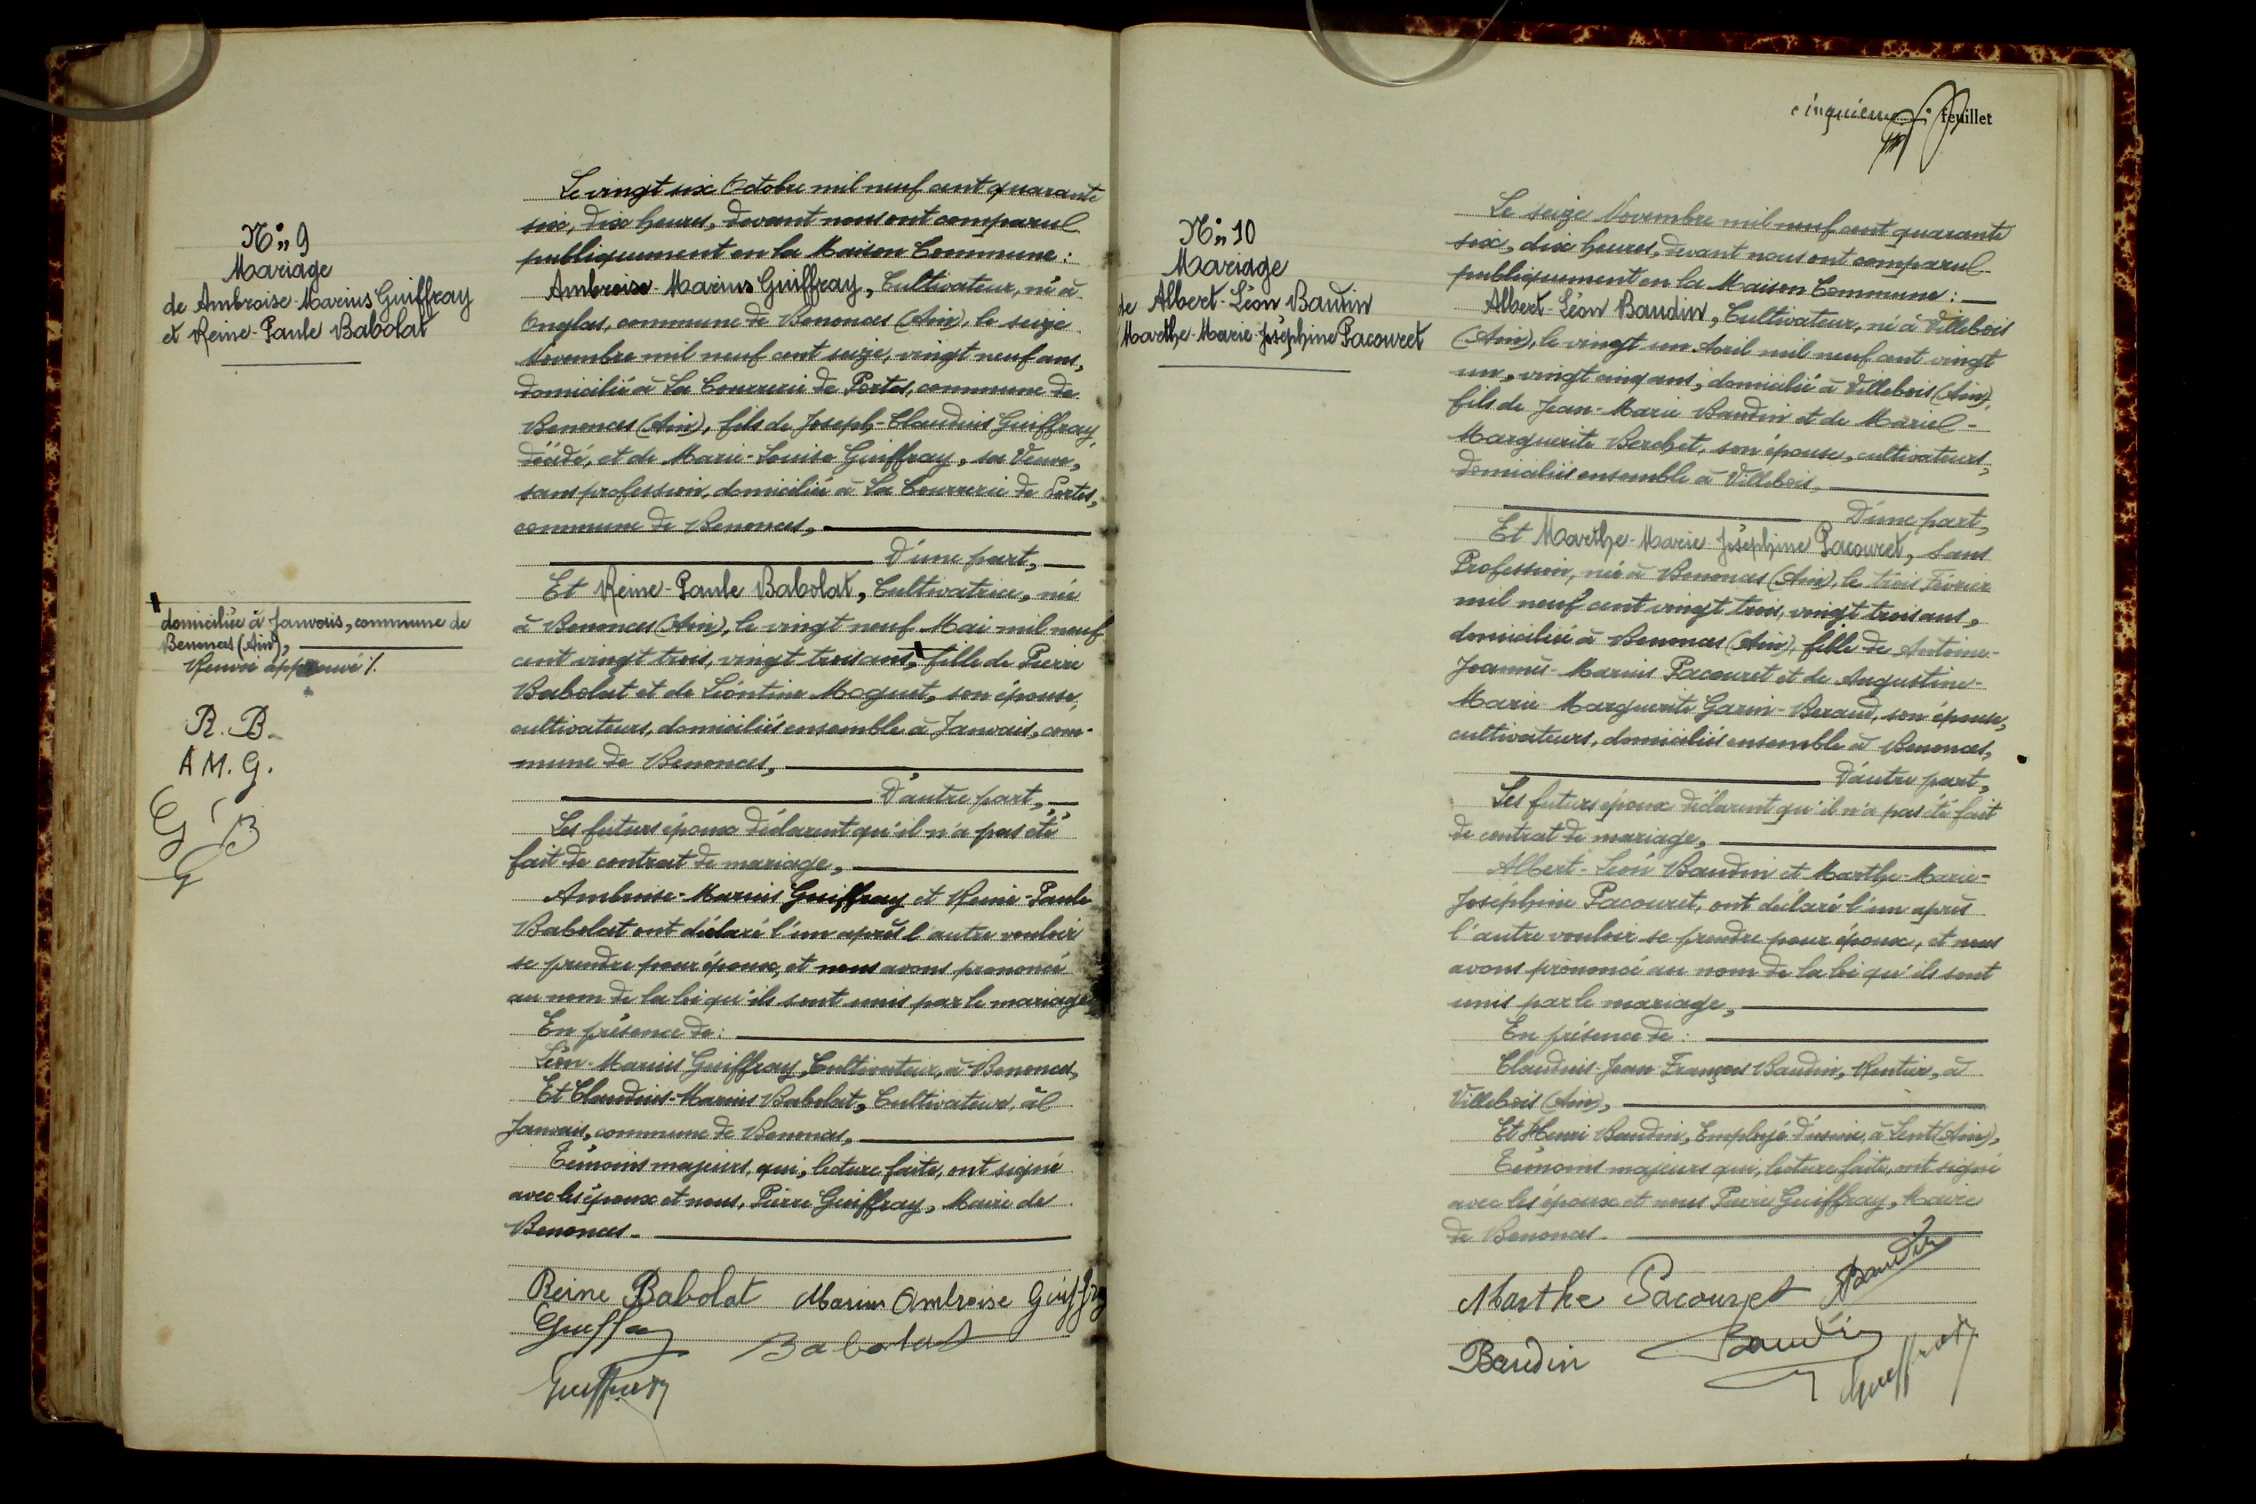 N° 9
Mariage
de Ambroise-Marius Guiffray
et Reine-Paule Babolat
Le vingt six Octobre mil neuf cent quarante
six, dix heures, devant nous ont comparu
publiquement en la Maison Commune :
Ambroise-Marius Guiffray, Cultivateur, né à
Onglas, commune de Benonces (Ain), le seize
Novembre mil neuf cent seize, vingt neuf ans,
domicilié à La Courrerie de Portes, commune de
Benonces (Ain), fils de Joseph-Claudius Guiffray,
décédé, et de Marie-Louise Guiffray, sa Veuve,
sans profession, domiciliée à La Courrerie de Portes,
commune de Benonces,
D'une part,
Et Reine-Paule Babolat, Cultivatrice, née
à Benonces (Ain), le vingt neuf Mai mil neuf
cent vingt trois, vingt trois ans, fille de Pierre
Babolat et de Léontine Moguet, son épouse,
cultivateurs, domiciliés ensemble à Janvais, com-
mune de Benonces,
D'autre part,
Les futurs époux déclarent qu'il n'a pas été
fait de contrat de mariage,
Ambroise-Marius Guiffray et Reine-Paule
Babolat ont déclaré l'un après l'autre vouloir
se prendre pour époux, et nous avons prononcé
au nom de la loi qu'ils sont unis par le mariage
En présence de :
Léon-Marius Guiffray, Cultivateur, à Benonces,
Et Claudius-Marius Babolat, Cultivateur, à
Janvais, commune de Benonces,
Témoins majeurs, qui, lecture faite, ont signé
avec les époux et nous, Pierre Guiffray, Maire de
Benonces.
domiciliée à Janvais, commune de
Benonces (Ain),
Renvoi approuvé %.
R. B.
A M. G.
G B
G
Reine Babolat Marius Ambroise Guiffray
Guiffray Babolat
Guiffray
cinquième feuillet
N° 10
Mariage
de Albert-Léon Baudin
Marthe-Marie-Joséphine Pacouret
Le seize Novembre mil neuf cent quarante
six, dix heures, devant nous ont comparu
publiquement en la Maison Commune :
Albert-Léon Baudin, Cultivateur, né à Villebois
(Ain), le vingt un Avril mil neuf cent vingt
un, vingt cinq ans, domicilié à Villebois (Ain),
fils de Jean-Marie Baudin et de Marie-
Marguerite Berchet, son épouse, cultivateurs,
domiciliés ensemble à Villebois,
D'une part,
Et Marthe-Marie-Joséphine Pacouret, Sans
Profession, née à Benonces (Ain), le trois Février
mil neuf cent vingt trois, vingt trois ans,
domiciliée à Benonces (Ain), fille de Antoine-
Joannès-Marius Pacouret et de Augustine-
Marie Marguerite Garin-Beraud, son épouse,
cultivateurs, domiciliés ensemble à Benonces,
D'autre part,
Les futurs époux déclarent qu'il n'a pas été fait
de contrat de mariage,
Albert-Léon Baudin et Marthe-Marie-
Joséphine Pacouret, ont déclaré l'un après
l'autre vouloir se prendre pour époux, et nous
avons prononcé au nom de la loi qu'ils sont
unis par le mariage,
En présence de :
Claudius-Jean François Baudin, Rentier, à
Villebois (Ain),
Et Henri Baudin, Employé d'usine, à Lent (Ain),
Témoins majeurs qui, lecture faite, ont signé
avec les époux et nous Pierre Guiffray, Maire
de Benonces.
Marthe Pacouret Baudin
Baudin Baudin Guiffray